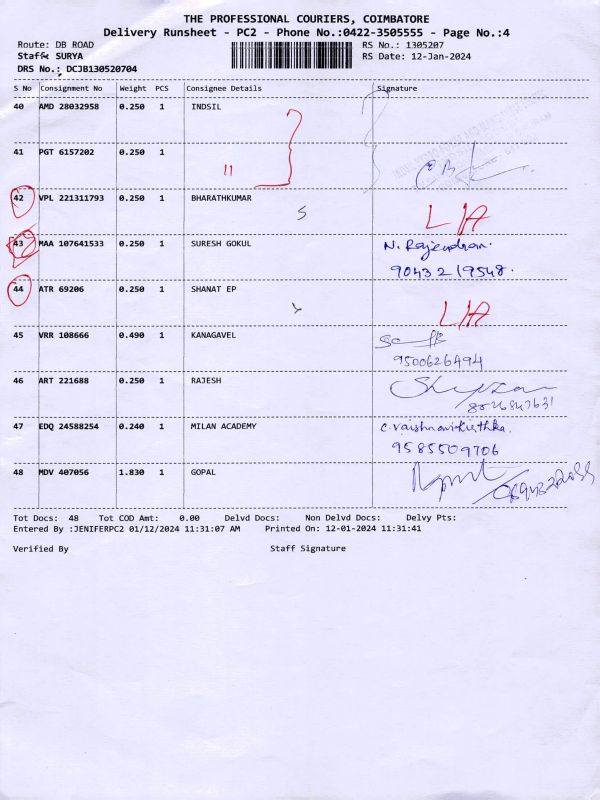 THE PROFESSIONAL COURIERS, COIMBATORE
Delivery Runsheet - PC2 - Phone No.:0422-3505555 - Page No.:4
Route: DB ROAD RS No.: 1305207
Staff: SURYA RS Date: 12-Jan-2024
DRS No.: DCJB130520704
S No Consignment No Weight PCS Consignee Details Signature
40 AMD 28032958 0.250 1 INDSIL
41 PGT 6157202 0.250 1
11
42 VPL 221311793 0.250 1 BHARATHKUMAR
L/A
43 MAA 107641533 0.250 1 SURESH GOKUL N. Rajendran.
90432 19548.
44 ATR 69206 0.250 1 SHANAT EP
L/A
45 VRR 108666 0.490 1 KANAGAVEL
9500626494
46 ART 221688 0.250 1 RAJESH
47 EDQ 24588254 0.240 1 MILAN ACADEMY
9585509706
48 MDV 407056 1.830 1 GOPAL
Tot Docs: 48 Tot COD Amt: 0.00 Delvd Docs: Non Delvd Docs: Delvy Pts:
Entered By :JENIFERPC2 01/12/2024 11:31:07 AM Printed On: 12-01-2024 11:31:41
Verified By Staff Signature